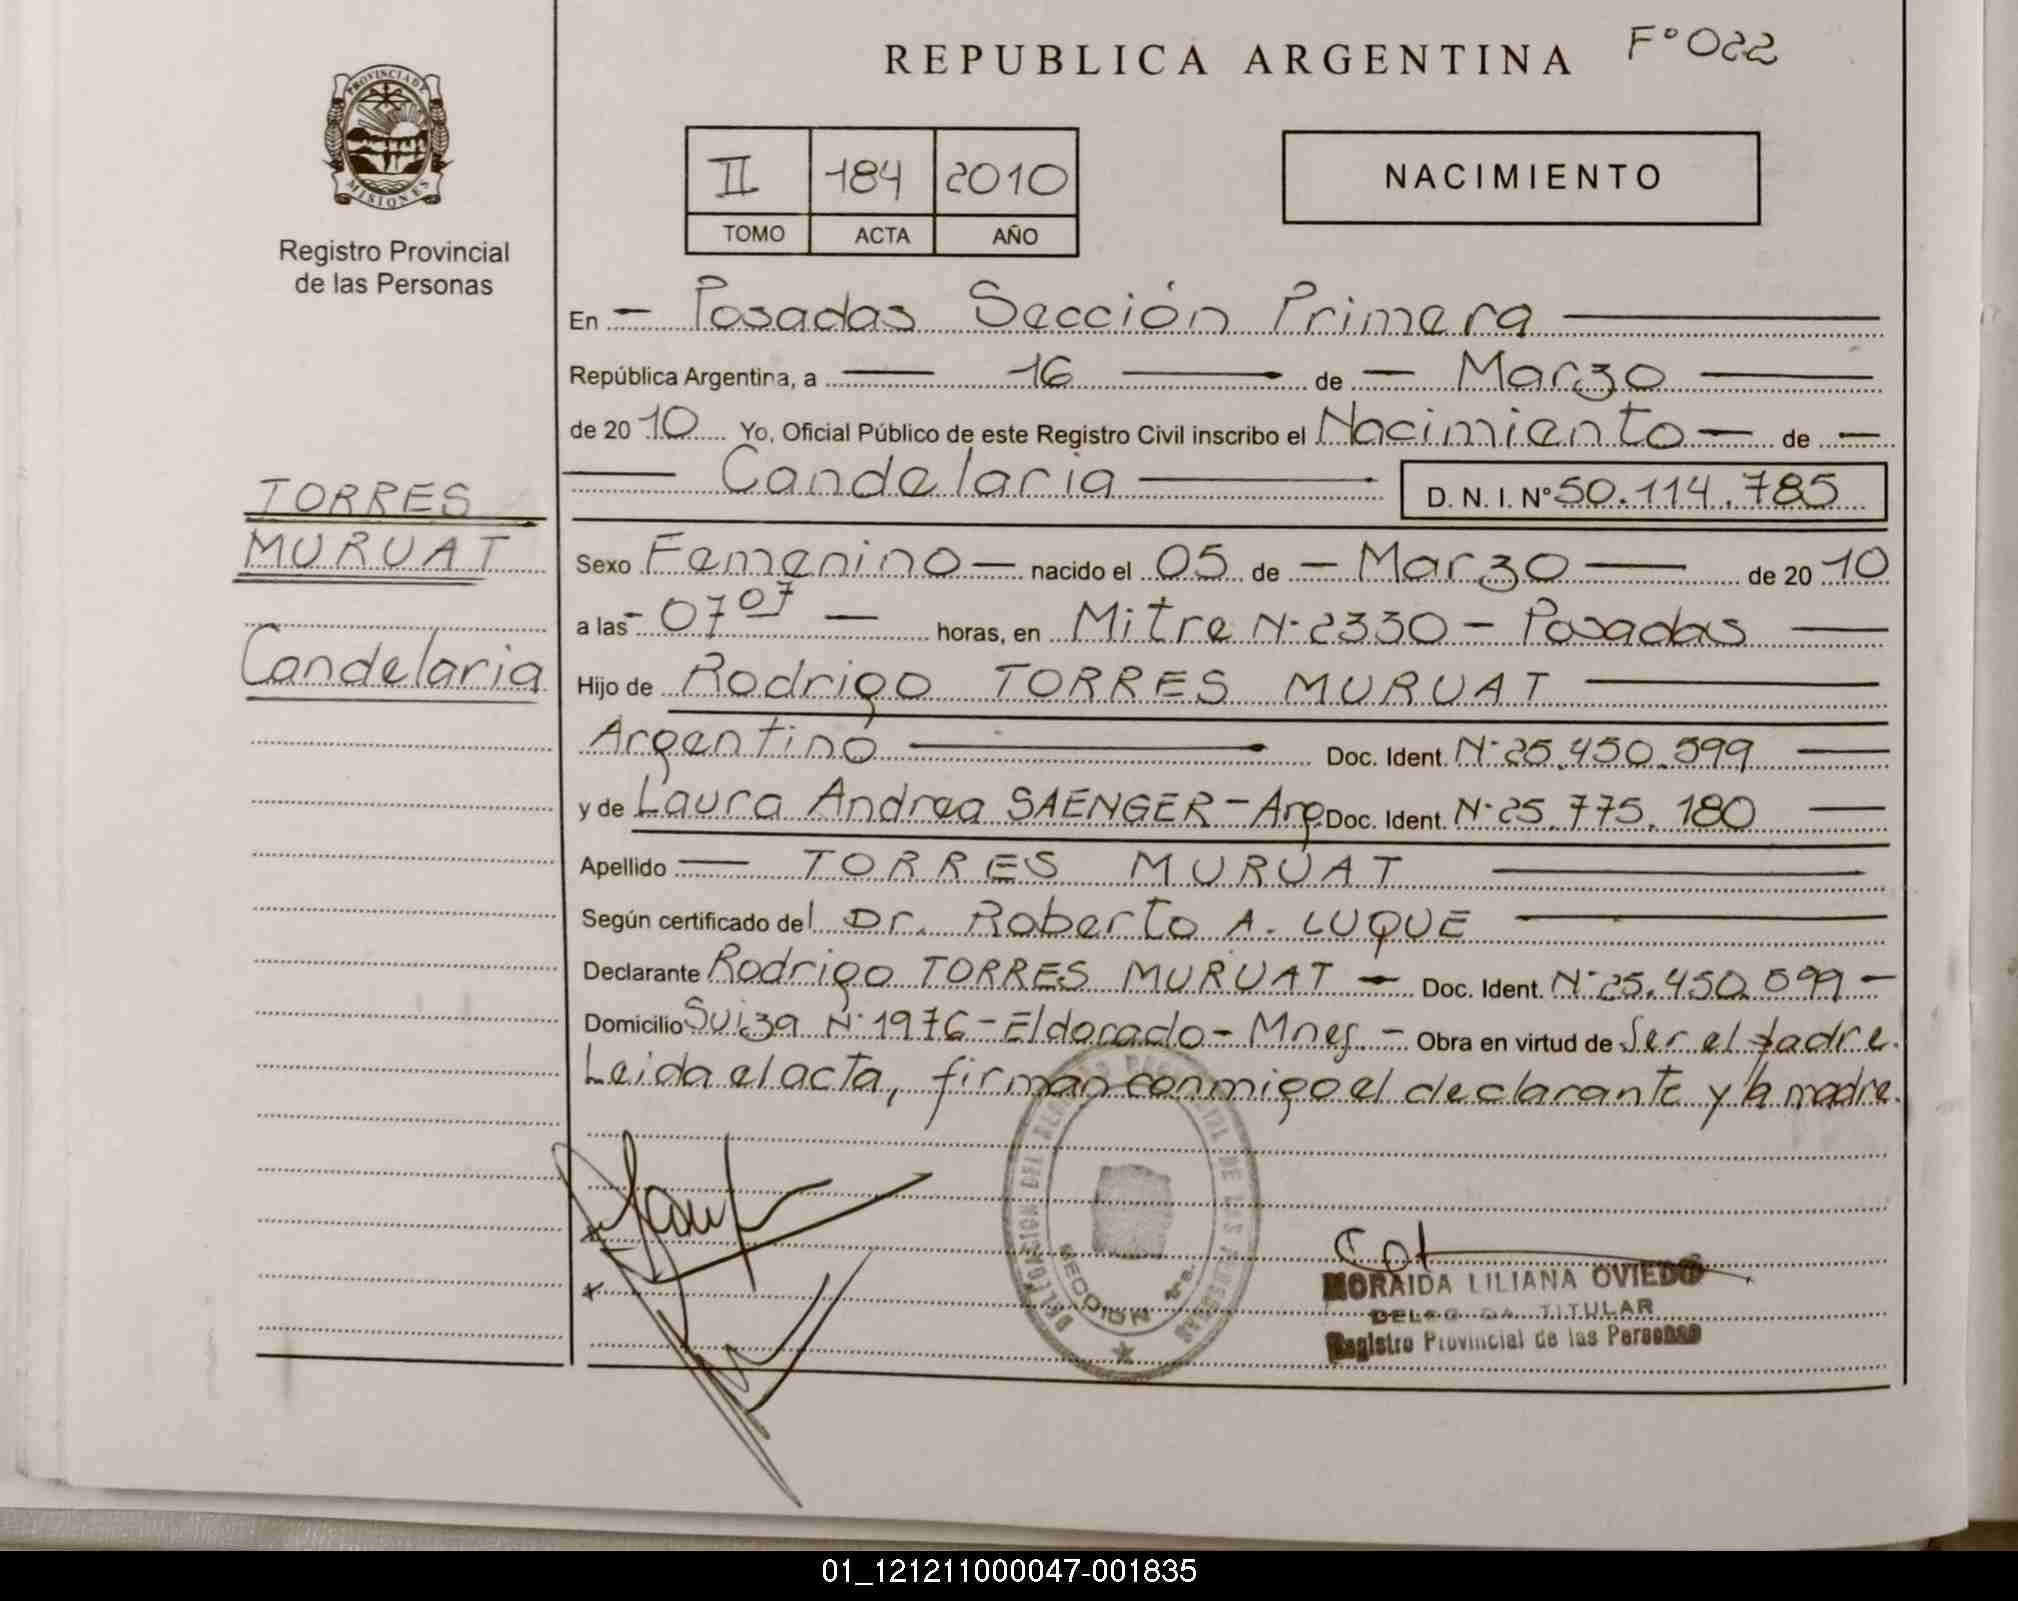 REPUBLICA ARGENTINA F° 022
PROVINCIA DE MISIONES
Registro Provincial
de las Personas
II 184 2010
TOMO ACTA AÑO
NACIMIENTO
En — Posadas Sección Primera —
República Argentina, a — 16 — de — Marzo —
de 20 10 Yo, Oficial Público de este Registro Civil inscribo el Nacimiento — de —
— Candelaria — D. N. I. N° 50.114.785
TORRES
MURUAT
Candelaria
Sexo Femenino — nacido el 05 de — Marzo — de 20 10
a las 07 07 — horas, en Mitre N° 2330 - Posadas —
Hijo de Rodrigo TORRES MURUAT —
Argentino — Doc. Ident. N° 25.450.599 —
y de Laura Andrea SAENGER - Arg. Doc. Ident. N° 25.775.180 —
Apellido — TORRES MURUAT —
Según certificado del Dr. Roberto A. LUQUE —
Declarante Rodrigo TORRES MURUAT — Doc. Ident. N° 25.450.599 —
Domicilio Suiza N° 1976 - Eldorado - Mnes. - Obra en virtud de Ser el padre.
Leida el acta, firman conmigo el declarante y la madre.
DELEGACION DEL REGISTRO PROVINCIAL DE LAS PERSONAS
SECCION 1ra.
MORAIDA LILIANA OVIEDO
DELEGADA TITULAR
Registro Provincial de las Personas
01_121211000047-001835